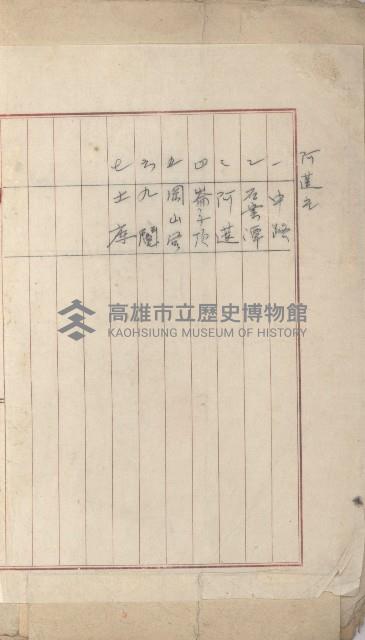 阿蓮庄
一 中路
二 石案潭
三 阿蓮
四 崙子頂
五 岡山营
六 九鬮
七 土庫
高雄市立歷史博物館
KAOHSIUNG MUSEUM OF HISTORY